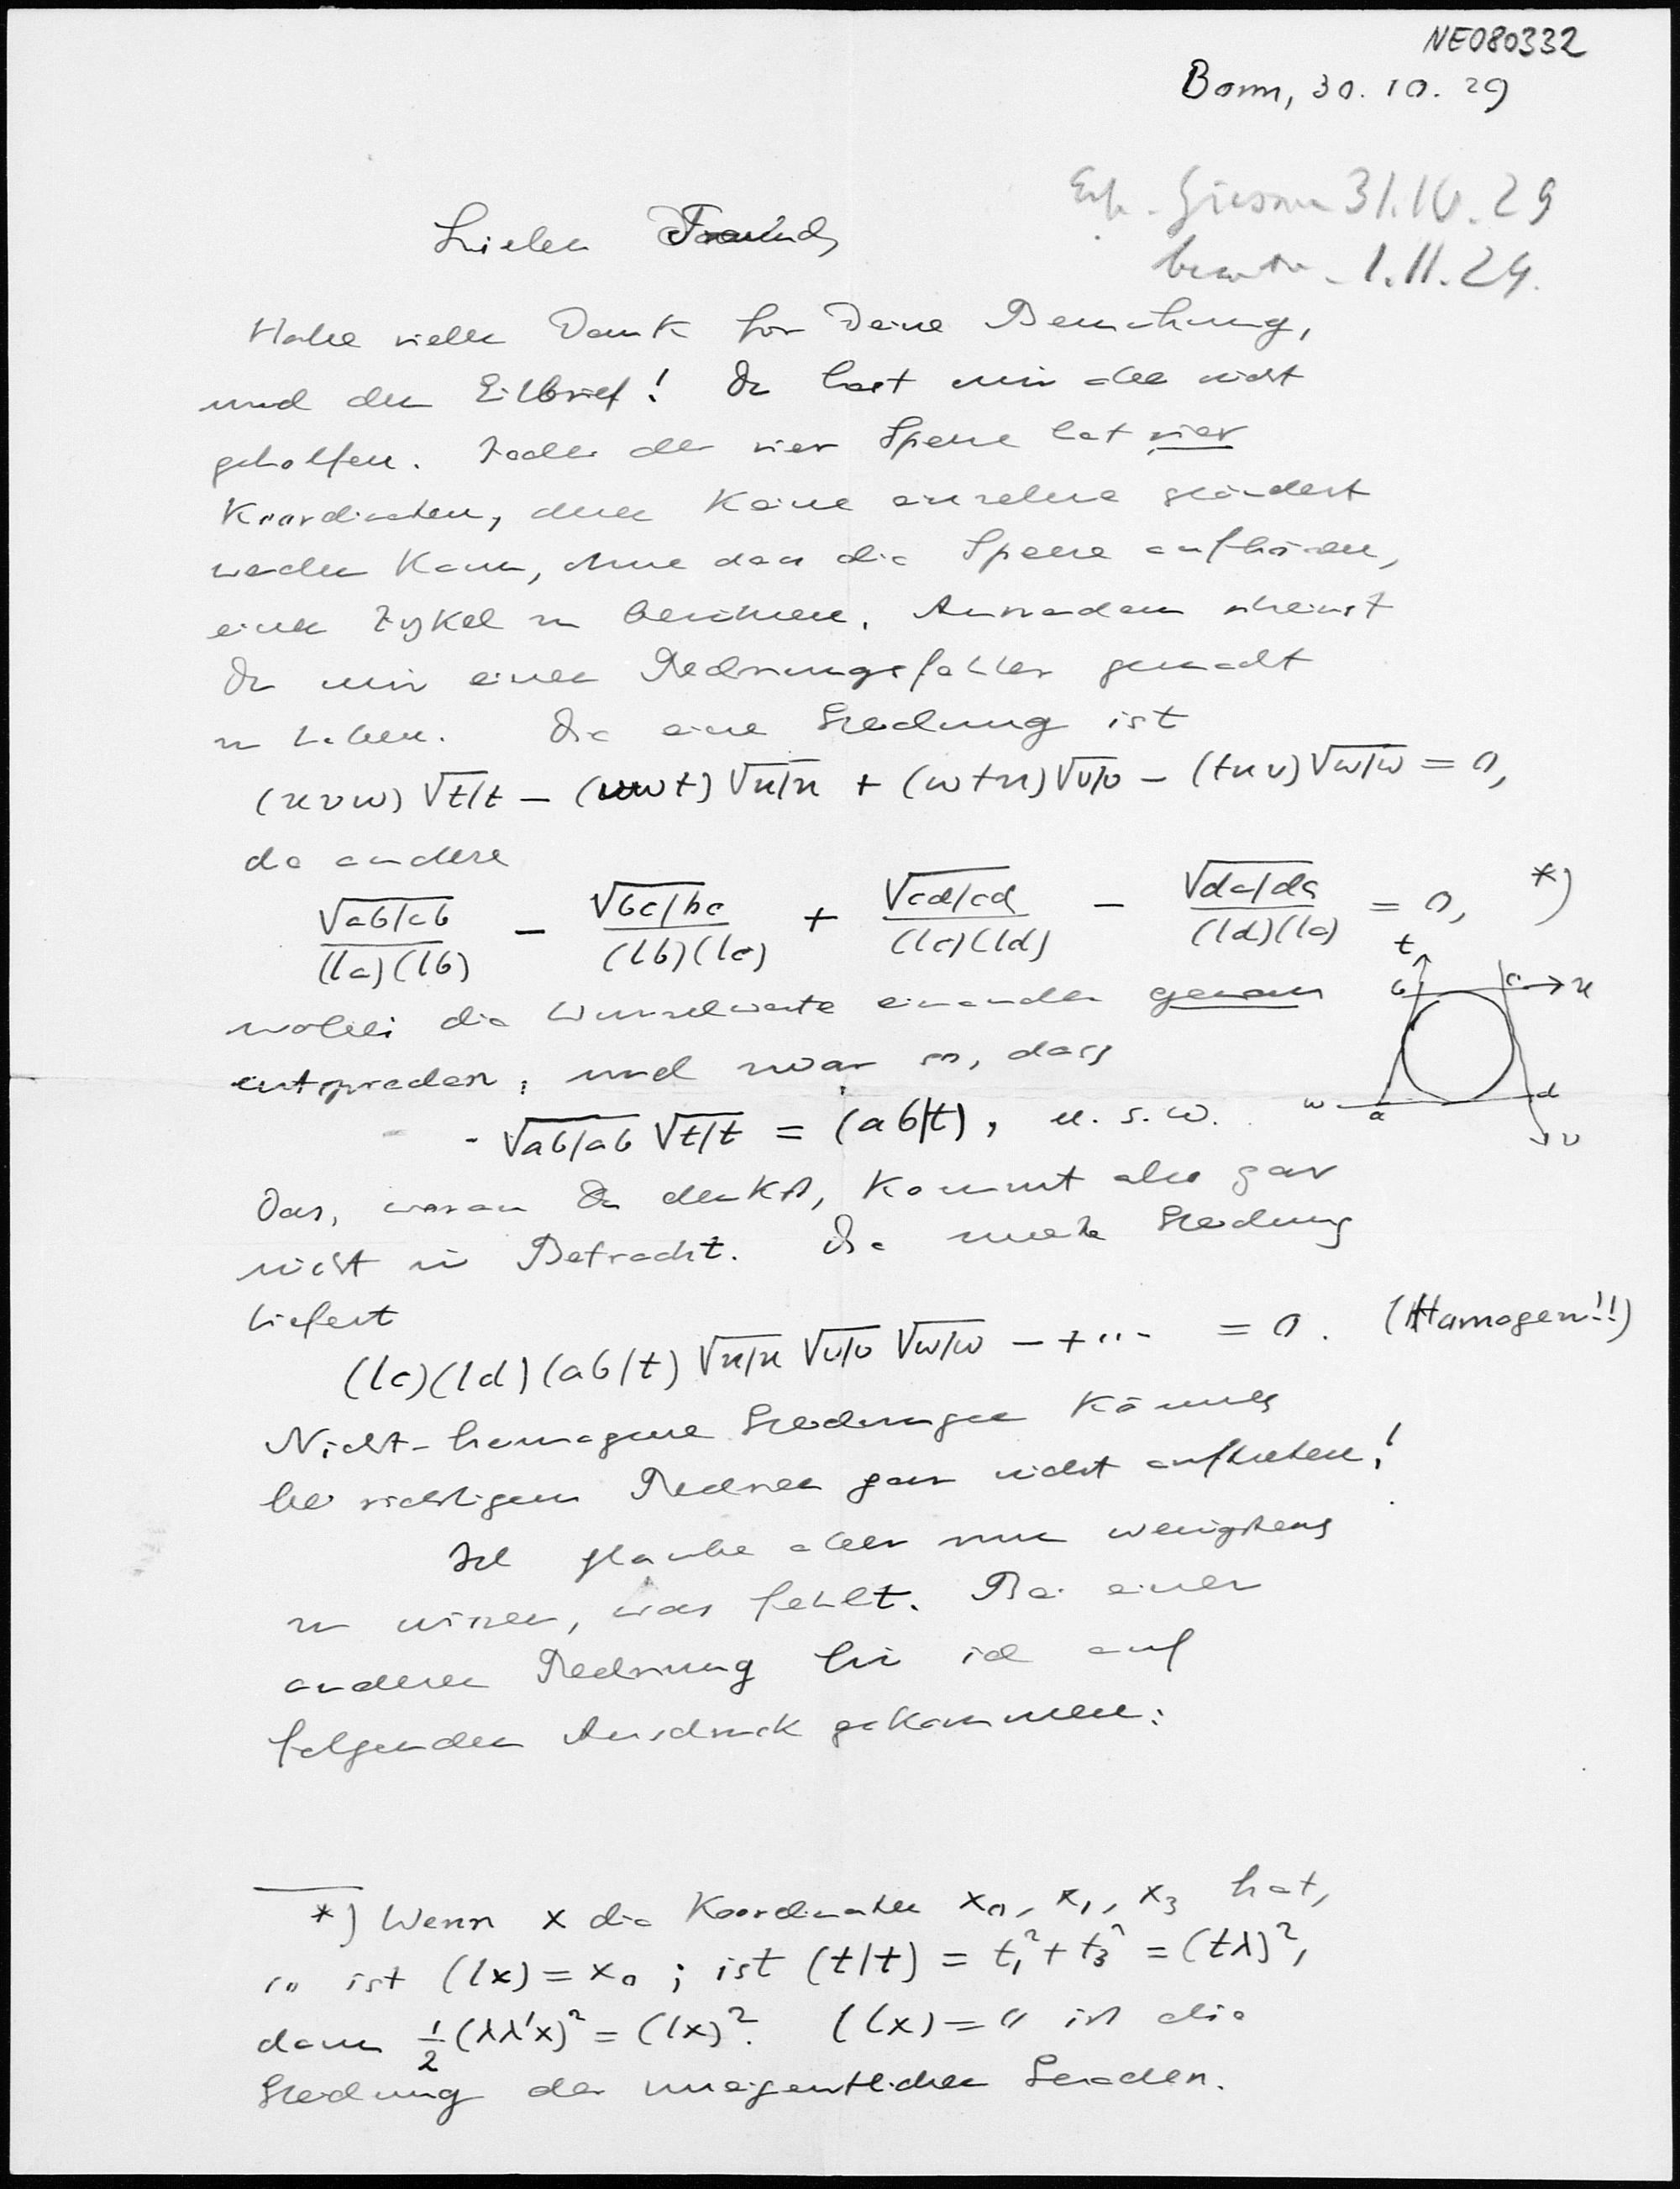 NE080332
Bonn, 30. 10. 29
Giessen 31.10.29
1.11.29.
Lieber Freund,
Habe vielen Dank für Deine Bemühung,
und den Eilbrief! Du hast mir aber nicht
geholfen. Jeder der vier Speere hat vier
Koordinaten, deren keine einzelne geändert
werden kann, ohne dass die Speere aufhören,
einen Zykel zu berühren. Ausserdem scheinst
Du mir einen Rechnungsfehler gemacht
zu haben. Die eine Gleichung ist
(uvw) √t/t − (vwt) √u/u + (wtu) √v/v − (tuv) √w/w = 0,
die andere
√ab/ab / (la)(lb) − √bc/bc / (lb)(lc) + √cd/cd / (lc)(ld) − √da/da / (ld)(la) = 0, *)
wobei die Wurzelwerte einander genau
entsprechen, und zwar so, dass
√ab/ab √t/t = (ab/t), u. s. w.
t b c u w a d v
Das, woran Du denkst, kommt also gar
nicht in Betracht. Die zweite Gleichung
liefert
(lc)(ld)(ab/t) √u/u √v/v √w/w − + ··· = 0. (Homogen!!)
Nicht-homogene Gleichungen können
bei richtigem Rechnen gar nicht auftreten!
Ich glaube aber nun wenigstens
zu wissen, was fehlt. Bei einer
anderen Rechnung bin ich auf
folgenden Ausdruck gekommen:
*) Wenn x die Koordinaten x₀, x₁, x₃ hat,
so ist (lx) = x₀ ; ist (t/t) = t₁² + t₃² = (tλ)²,
dann ½(λλ'x)² = (lx)². (lx) = 0 ist die
Gleichung der uneigentlichen Geraden.